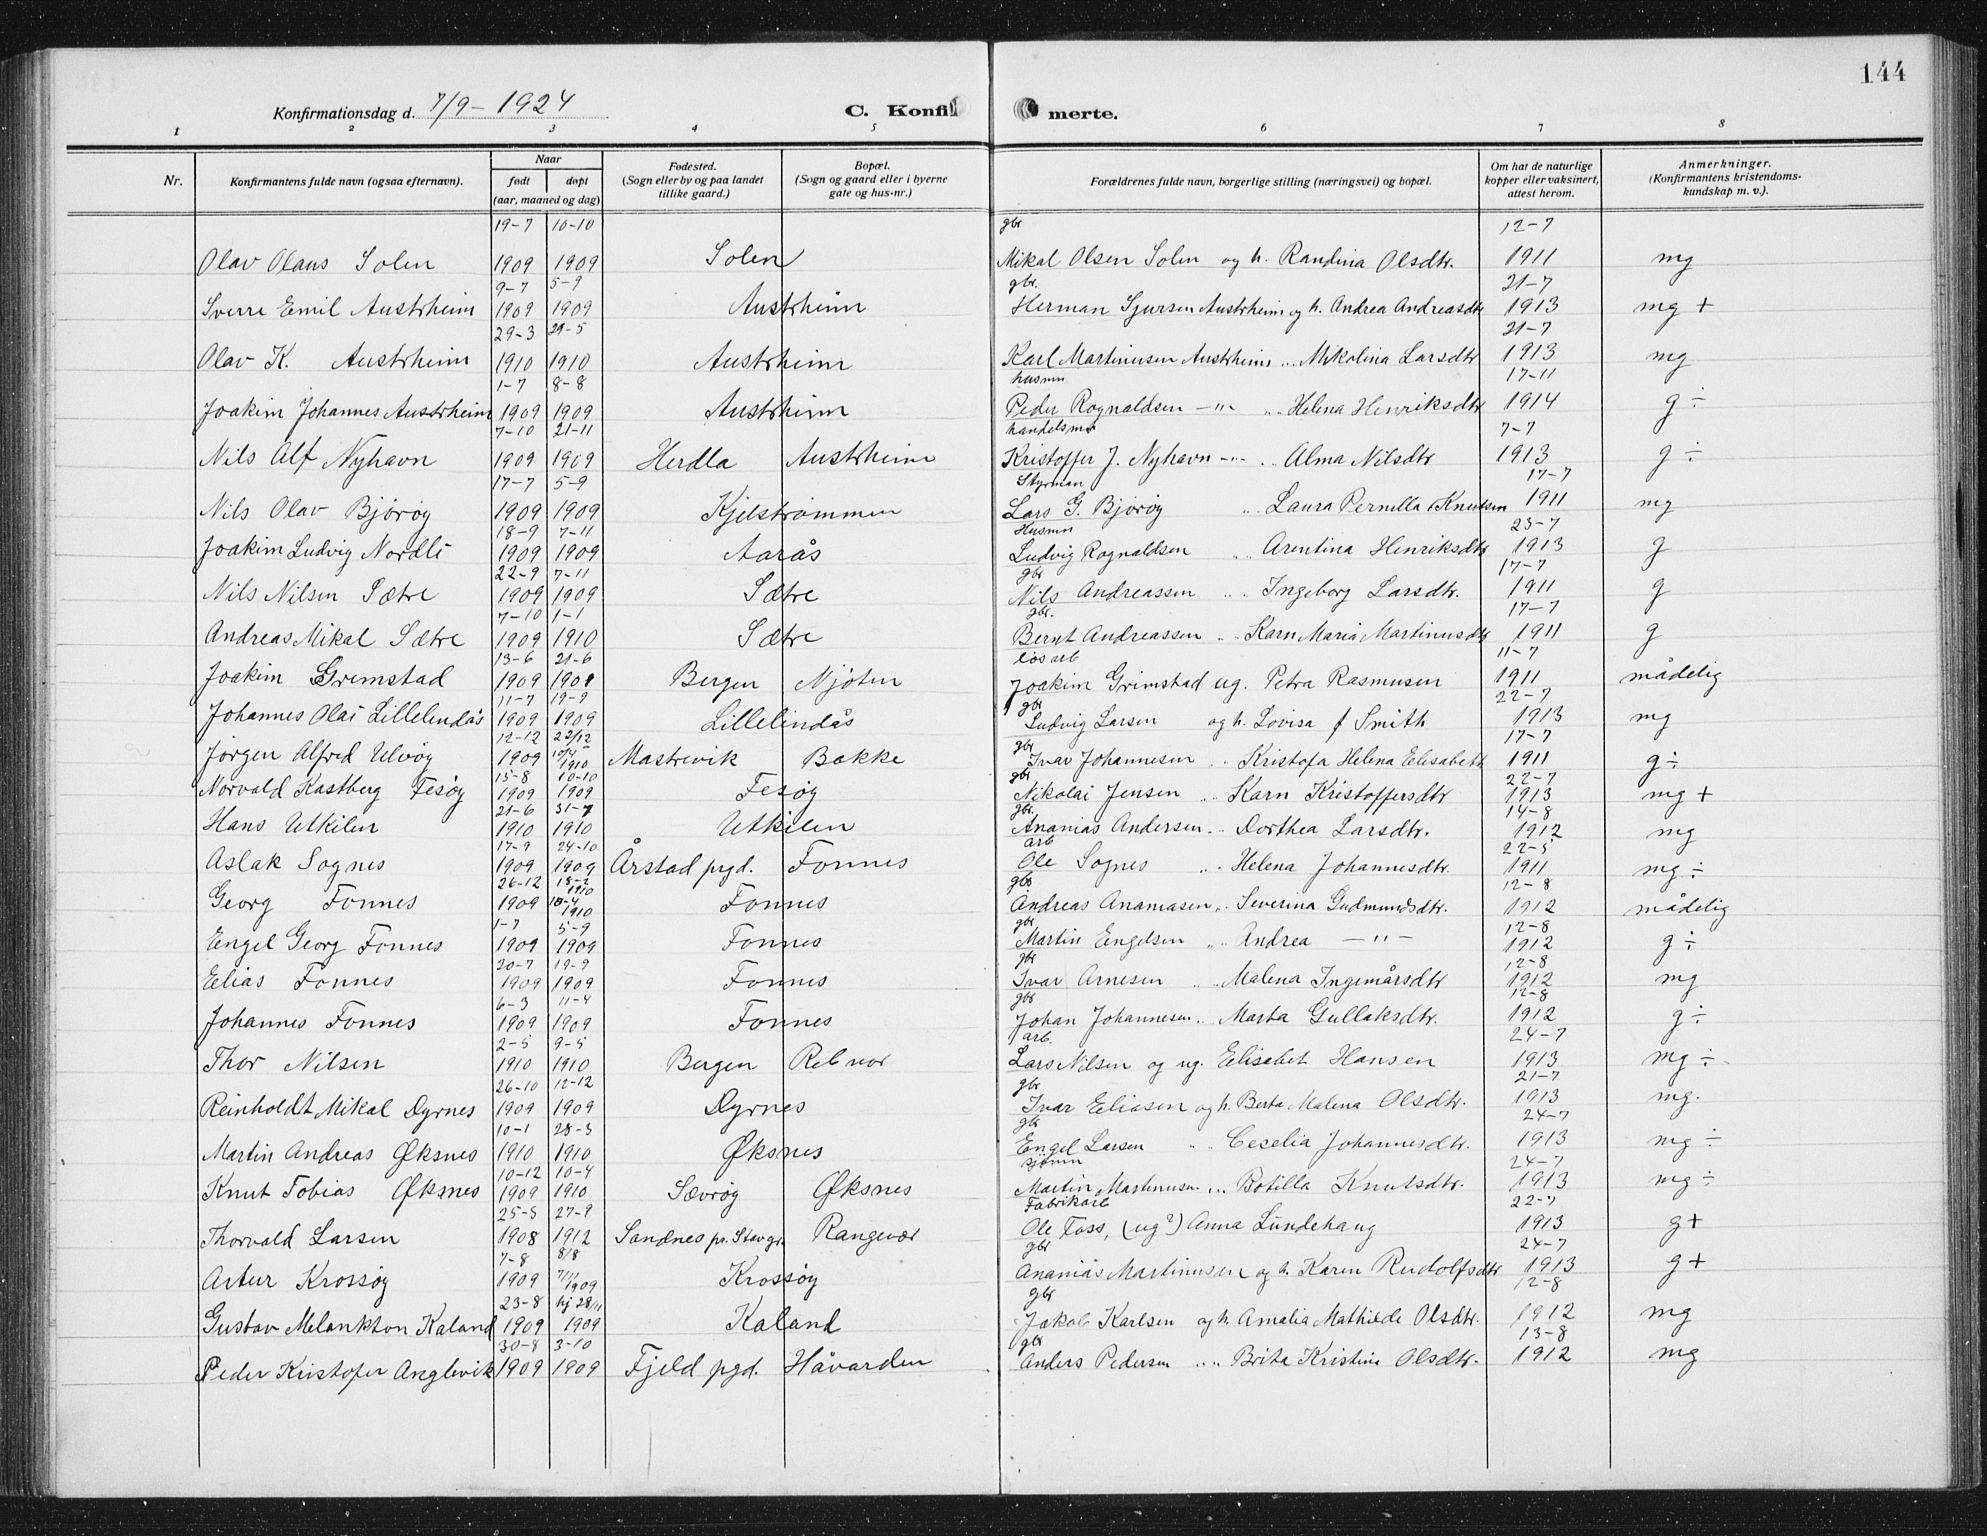 144
Konfirmationsdag d. 7/9 - 1924 C. Konfirmerte.
1 2 3 4 5 6 7 8
Nr. Konfirmantens fulde navn (ogsaa efternavn). Naar født døpt (aar, maaned og dag) Fødested. (Sogn eller by og paa landet tillike gaard.) Bopæl. (Sogn og gaard eller i byerne gate og hus-nr.) Forældrenes fulde navn, borgerlige stilling (næringsvei) og bopæl. Om hat de naturlige kopper eller vaksinert, attest herom. Anmerkninger. (Konfirmantens kristendomskundskap m. v.).
19-7 10-10 gbr 12-7
Olav Olaus Solen 1909 1909 Solen Mikal Olsen Solen og h. Randina Olsdtr. 1911 mg
9-7 5-9 gbr. 21-7
Sverre Emil Austrheim 1909 1909 Austrheim Herman Sjursen Austrheim og h. Andrea Andreasdtr 1913 mg +
29-3 29-5 21-7
Olav K. Austrheim 1910 1910 Austrheim Karl Martinusen Austrheim „ „ Mikolina Larsdtr 1913 mg
1-7 8-8 husmn 17-11
Joakim Johannes Austrheim 1909 1909 Austrheim Peder Rognaldsen - „ - „ „ Helena Henriksdtr 1914 g ÷
7-10 21-11 handelsmn 7-7
Nils Alf Nyhavn 1909 1909 Herdla Austrheim Kristoffer J. Nyhavn - „ - „ „ Alma Nilsdtr 1913 g ÷
17-7 5-9 Styrman 17-7
Nils Olav Bjørøy 1909 1909 Kjelstrømmen Lars G. Bjørøy „ „ Laura Pernella Knutsen 1911 mg
18-9 7-11 Husmn 23-7
Joakim Ludvig Nordli 1909 1909 Aarås Ludvig Rognaldsen „ „ Arentina Henriksdtr 1913 g
22-9 7-11 gbr 17-7
Nils Nilsen Sætre 1909 1909 Sætre Nils Andreassen „ „ Ingeborg Larsdtr. 1911 g
7-10 1-1 gbr. 17-7
Andreas Mikal Sætre 1909 1910 Sætre Bernt Andreassen „ „ Karn Maria Martinusdtr 1911 g
13-6 21-6 løsarb 11-7
Joakim Grimstad 1909 1909 Bergen Njøten Joakim Grimstad ug. Petra Rasmusen 1911 mådelig
11-7 19-9 gbr 22-7
Johannes Olai Lillelindås 1909 1909 Lillelindås Ludvig Larsen og h. Lovisa f Smith 1913 mg
12-12 22/12 gbr 17-7
Jørgen Alfred Ulvøy 1909 10/4 1910 Mastrevik Bakke Ivar Johannesen „ „ Kristofa Helena Elisabeth 1911 g ÷
15-8 10-10 gbr 22-7
Norvald Kastberg Fesøy 1909 1909 Fesøy Nikolai Jensen „ „ Karn Kristoffersdtr 1913 mg +
21-6 31-7 gbr. 14-8
Hans Utkilen 1910 1910 Utkilen Ananias Andersen „ „ Dorthea Larsdtr. 1912 mg
17-9 24-10 arb 22-5
Aslak Sognes 1909 1909 Årstad pgd. Fonnes Ole Sognes „ „ Helena Johannesdtr. 1911 mg ÷
26-12 18-2 1910 gbr 12-8
Georg Fonnes 1909 10-4 1910 Fonnes Andreas Ananiasen „ „ Severina Gudmundsdtr. 1912 mådelig
1-7 5-9 gbr 12-8
Engel Georg Fonnes 1909 1909 Fonnes Martin Engelsen „ „ Andrea - „ - 1912 g ÷
20-7 19-9 gbr 12-8
Elias Fonnes 1909 1909 Fonnes Ivar Arnesen „ „ Malena Ingemårsdtr 1912 mg
6-3 11-4 gbr 12-8
Johannes Fonnes 1909 1909 Fonnes Johan Johannesen „ „ Marta Gullaksdtr. 1912 g ÷
2-5 9-5 arb. 24-7
Thor Nilsen 1910 1910 Bergen Rebnor Lars Nilsen og ug. Elisabet Hansen 1913 mg ÷
26-10 12-12 gbr 21-7
Reinholdt Mikal Dyrnes 1909 1909 Dyrnes Ivar Eliasen og h. Berta Malena Olsdtr. 1913 mg.
10-1 28-3 gbr 24-7
Martin Andreas Øksnes 1910 1910 Øksnes Engel Larsen „ „ Ceselia Johannesdtr. 1913 mg ÷
10-12 10-4 sjømn 24-7
Knut Tobias Øksnes 1909 1910 Sævrøy Øksnes Martin Martinusen „ „ Botilla Knutsdtr. 1913 mg ÷
25-5 27-9 Fabrikarb 22-7
Thorvald Larsen 1908 1912 Sandnes pr. Stavgr. Rangevær Ole Foss, (ug?) Anna Lundehaug 1913 g +
7-8 8/8 gbr 24-7
Artur Krossøy 1909 7/11 1909 Krossøy Ananias Martinusen og h. Karen Rudolfsdtr 1913 g +
23-8 hj 28/11 gbr 12-8
Gustav Melankton Kaland 1909 1909 Kaland Jakob Karlsen og h. Amalia Mathilde Olsdtr. 1912 mg
30-8 3-10 gbr 13-8
Peder Kristofer Anglevik 1909 1909 Fjeld pgd. Håvarden Anders Pedersen „ „ Brita Kristina Olsdtr. 1912 mg